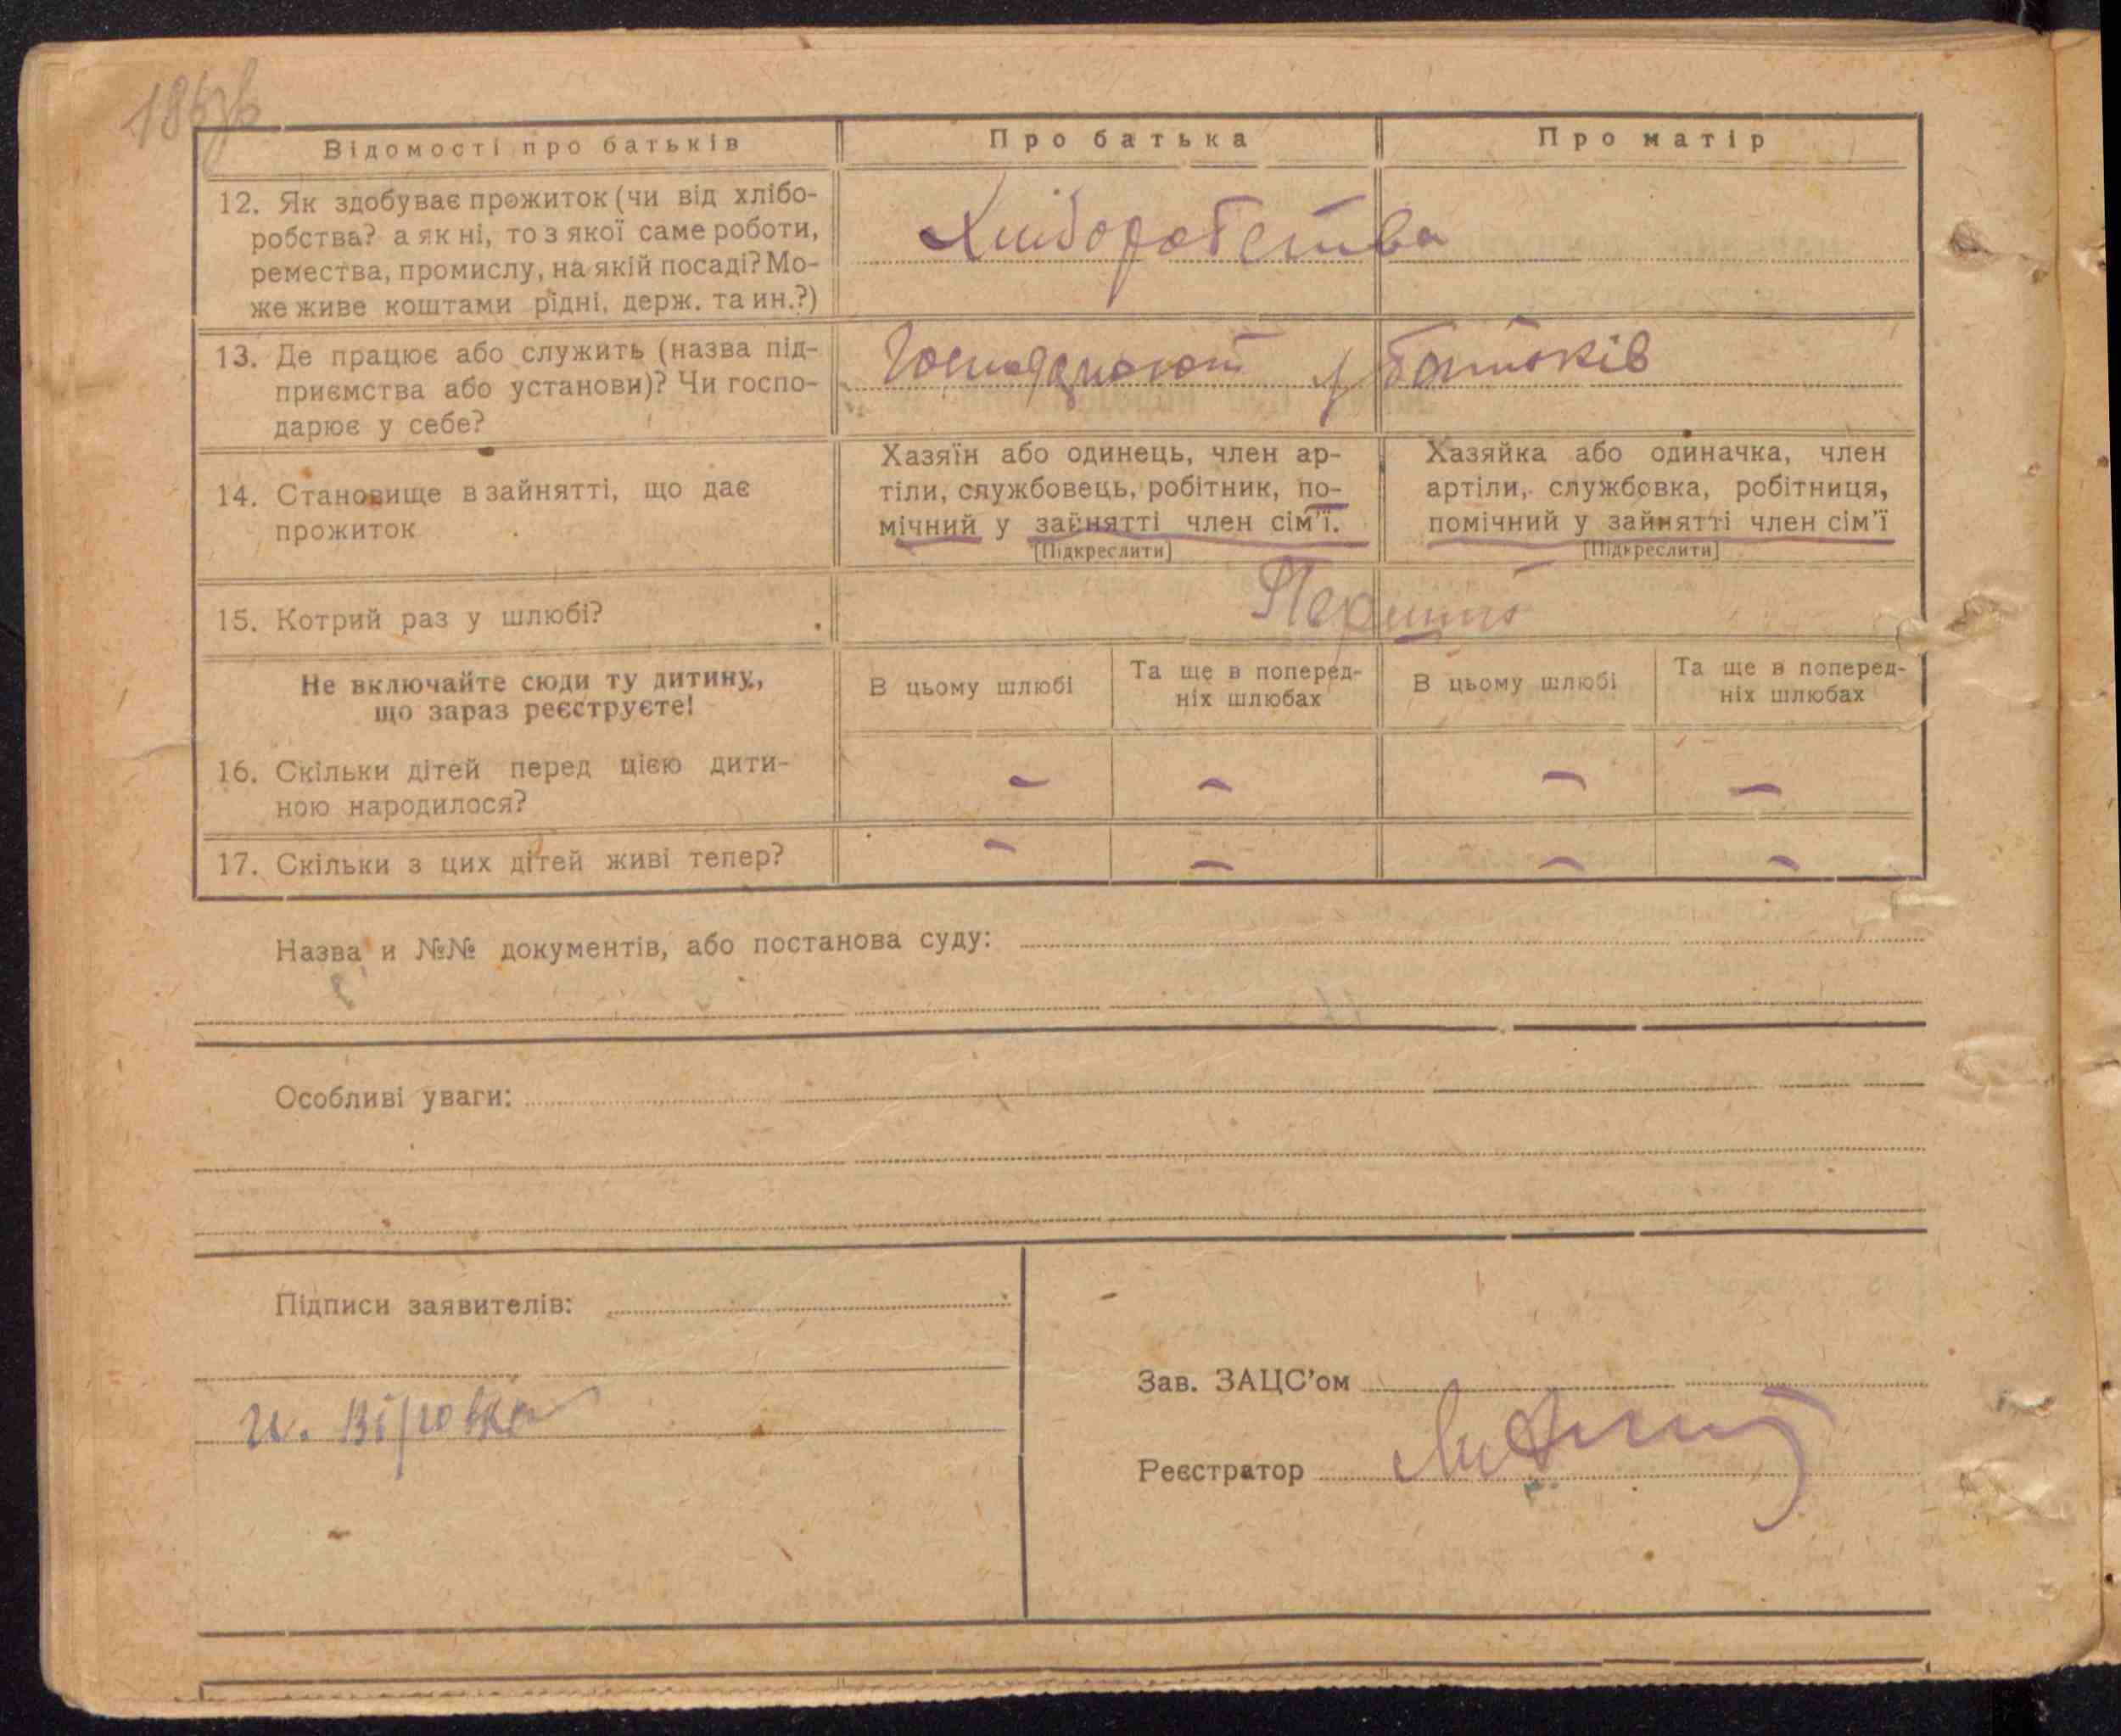 Відомості про батьків
Про батька
Про матір
12. Як здобуває прожиток (чи від хлібо-
робства? а як ні, то з якої саме роботи,
ремества, промислу, на якій посаді? Мо-
же живе коштами рідні, держ. та ин.?)
Хліборобства
13. Де працює або служить (назва під-
приємства або установи)? Чи госпо-
дарює у себе?
у батьків
14. Становище в зайнятті, що дає
прожиток
Хазяїн або одинець, член ар-
тіли, службовець, робітник, по-
мічний у зайнятті член сім'ї.
[Підкреслити]
Хазяйка або одиначка, член
артіли, службовка, робітниця,
помічний у зайнятті член сім'ї
[Підкреслити]
15. Котрий раз у шлюбі?
Перший
Не включайте сюди ту дитину,
що зараз реєструєте!
В цьому шлюбі
Та ще в поперед-
ніх шлюбах
В цьому шлюбі
Та ще в поперед-
ніх шлюбах
16. Скільки дітей перед цією дити-
ною народилося?
– – – –
17. Скільки з цих дітей живі тепер?
– – – –
Назва и №№ документів, або постанова суду:
Особливі уваги:
Підписи заявителів:
Зав. ЗАЦС'ом
Реєстратор